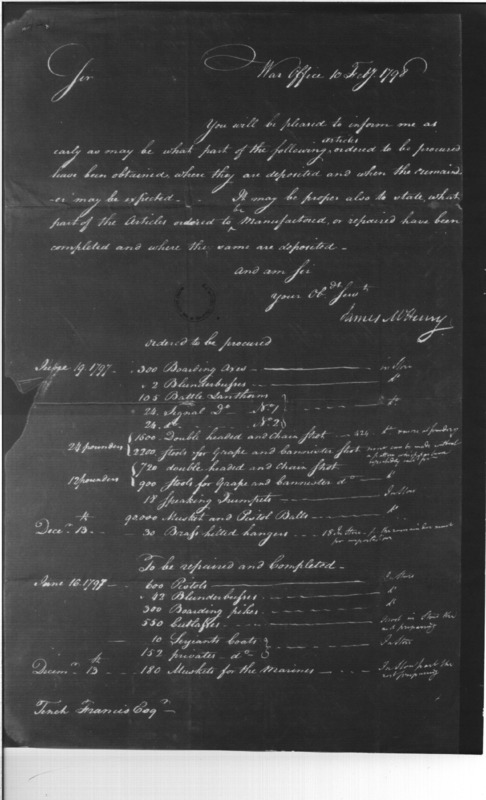 Sir
War Office 10 Feby. 1798
You will be pleased to inform me as
early as may be what part of the following articles ordered to be procured
have been obtained, where they are deposited and when the remain-
er may be expected - It may be proper also to state, what
part of the Articles ordered to be Manufactured, or repaired have been
completed and where the same are deposited -
and am Sir
your Obdt Servt
James McHenry
ordered to be procured
June 19. 1797 - 300 Boarding Axes - in Store
2 Blunderbusses - do
105 Battle Lanthorns
24 Signal Do No 1
24 do No 2
24 pounders 1500 Double headed and chain Shot - 424
2200 Stools for Grape and Cannister Shot
12 pounders 720 double headed and Chain Shot
900 Stools for Grape and Cannister do
18 Speaking Trumpets - In Store
Decr 13th 90,000 Musket and Pistol Balls - do
30 Brass hilted hangers - 18 In Store
To be repaired and Completed -
June 16. 1797 - 600 Pistols - In Store
43 Blunderbusses - do
300 Boarding pikes - do
550 Cutlasses - in Store the
rest preparing
10 Serjeants Coats
152 privates do - In Store
Decemr 13th 180 Muskets for the Marines - In Store part the
rest preparing
Tench Francis Esqr -